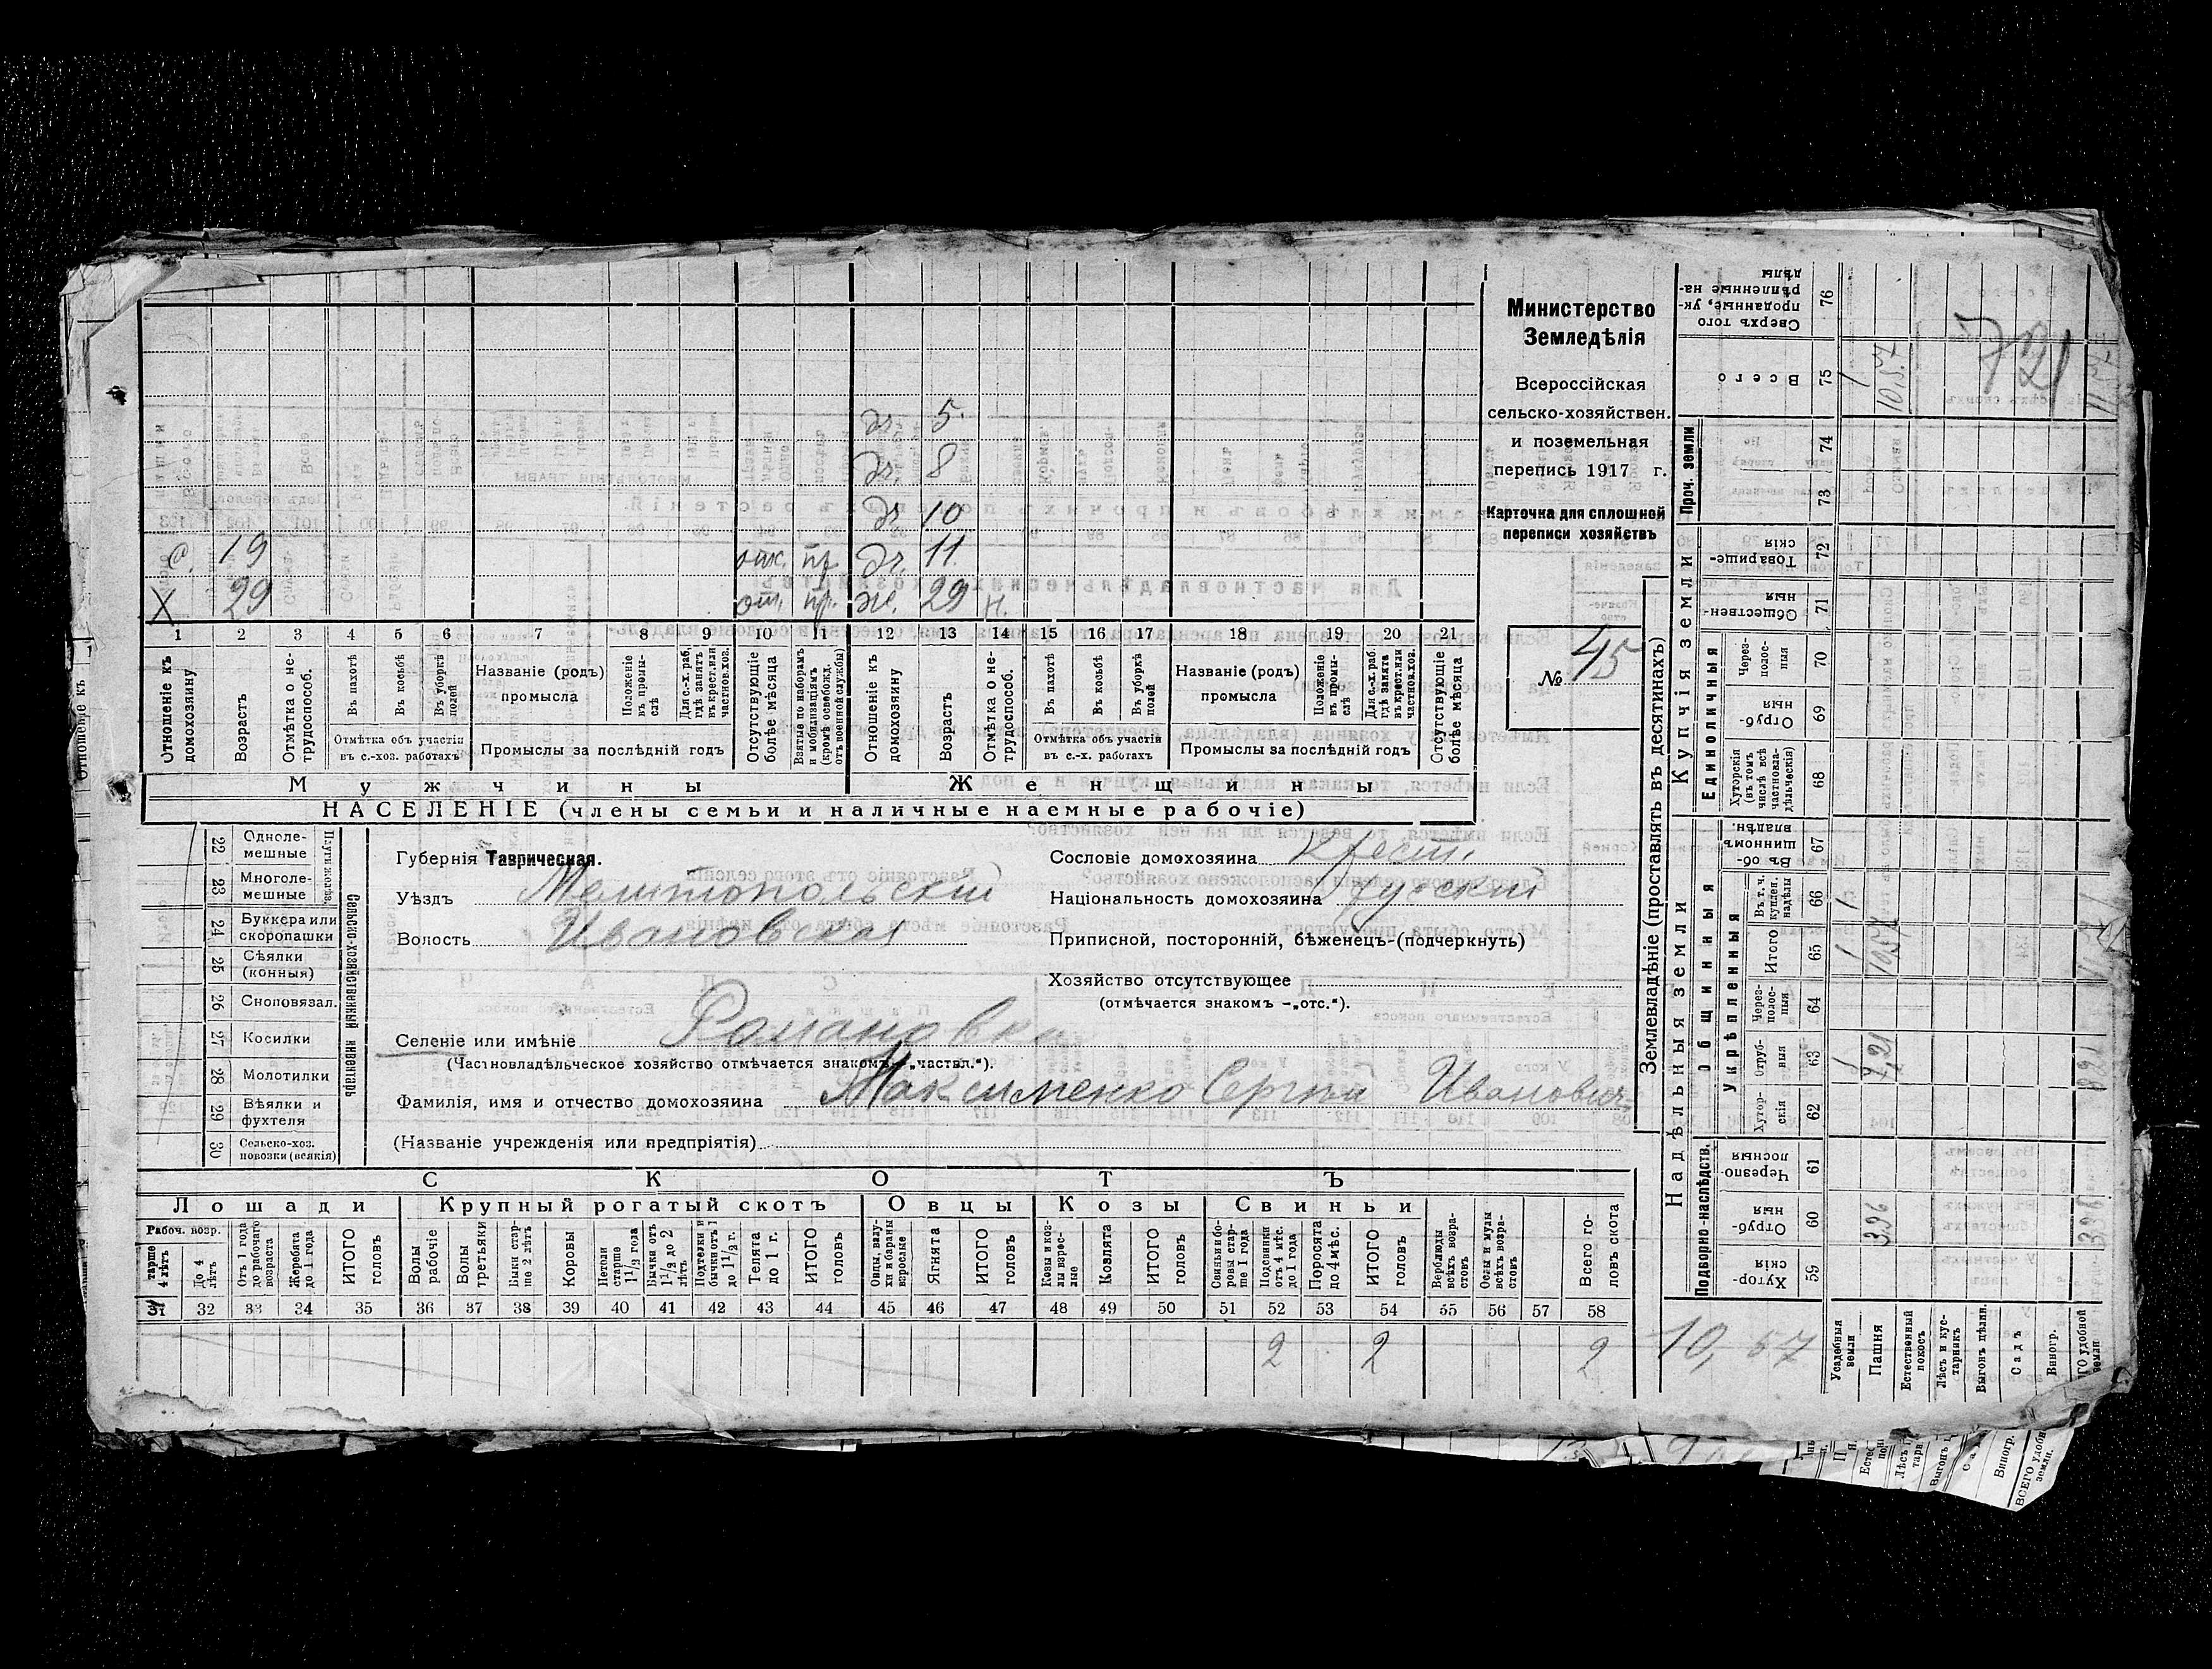 Министерство
Земледѣлія
Всероссійская
сельско-хозяйствен.
и поземельная
перепись 1917 г.
Карточка для сплошной
переписи хозяйствъ
№ 45
др. 5
др. 8
др. 10
с. 19 отк. пр. др. 11
Х 29 от. пр. ж. 29 н.
1 2 3 4 5 6 7 8 9 10 11 12 13 14 15 16 17 18 19 20 21
Отношеніе къ домохозяину
Возрастъ
Отмѣтка о нетрудоспособ.
Въ пахотѣ
Въ косьбѣ
Въ уборкѣ полей
Отмѣтка объ участіи
въ с.-хоз. работахъ
Названіе (родъ)
промысла
Положеніе въ промыслѣ
Для с.-х. раб. гдѣ занятъ въ крест. или частнов. хоз.
Промыслы за послѣдній годъ
Отсутствующіе болѣе мѣсяца
Взятые по наборамъ и мобилизаціямъ (кромѣ освобожд. отъ военной службы)
Отношеніе къ домохозяину
Возрастъ
Отмѣтка о нетрудоспособ.
Въ пахотѣ
Въ косьбѣ
Въ уборкѣ полей
Отмѣтка объ участіи
въ с.-х. работахъ
Названіе (родъ)
промысла
Положеніе въ промыслѣ
Для с.-х. раб. гдѣ занята въ крест. или частнов. хоз.
Промыслы за послѣдній годъ
Отсутствующіе болѣе мѣсяца
Мужчины Женщины
НАСЕЛЕНІЕ (члены семьи и наличные наемные рабочіе)
Сельско-хозяйственный инвентарь
22 Однолемешные
23 Многолемешные
24 Буккера или скоропашки
25 Сѣялки (конныя)
26 Сноповязал.
27 Косилки
28 Молотилки
29 Вѣялки и фухтеля
30 Сельско-хоз. повозки (всякія)
Губернія Таврическая.
Уѣздъ Мелитопольскій
Волость Ивановская
Сословіе домохозяина Крест.
Національность домохозяина русскій
Приписной, посторонній, бѣженецъ-(подчеркнуть)
Хозяйство отсутствующее
(отмѣчается знакомъ -„отс.“).
Селеніе или имѣніе Романовка
(Частновладѣльческое хозяйство отмѣчается знакомъ „частвл.“).
Фамилія, имя и отчество домохозяина Максименко Сергѣй Иванович
(Названіе учрежденія или предпріятія)
СКОТЪ
Лошади Крупный рогатый скотъ Овцы Козы Свиньи
Рабоч. возр.
старше 4 лѣтъ
До 4 лѣтъ
Отъ 1 года до рабочаго возраста
Жеребята до 1 года
ИТОГО головъ
Волы рабочіе
Волы третьяки
Быки старше 2 лѣтъ
Коровы
Нетели старше 1 1/2 года
Бычки отъ 1 1/2 до 2 лѣтъ
Подтелки и бычки отъ 1 до 1 1/2 г.
Телята до 1 г.
ИТОГО головъ
Овцы, валухи и бараны взрослые
Ягнята
ИТОГО головъ
Козы и козлы взрослые
Козлята
ИТОГО головъ
Свиньи и боровы старше 1 года
Подсвинки отъ 4 мѣс. до 1 года
Поросята до 4 мѣс.
ИТОГО головъ
Верблюды всѣхъ возрастовъ
Ослы и мулы всѣхъ возрастовъ
Всего головъ скота
31 32 33 34 35 36 37 38 39 40 41 42 43 44 45 46 47 48 49 50 51 52 53 54 55 56 57 58
2 2 2
Землевладѣніе (проставлять въ десятинахъ)
Надѣльныя земли Купчія земли Проч. земли
Подворно-наслѣдств.
Общинныя
Укрѣпленныя
Единоличныя
Хуторскія 59
Отрубныя 60
Черезполосныя 61
Хуторскія 62
Отрубныя 63
Черезполосныя 64
Итого 65
Въ т. ч. куплен. надѣлы 66
Въ общинномъ владѣн. 67
Хуторскія (въ томъ числѣ всѣ частновладѣльческія) 68
Отрубныя 69
Черезполосныя 70
Общественныя 71
Товарищескія 72
73
74
Всего 75
Сверхъ того проданные, укрѣпленные надѣлы 76
10,57
Усадебныя земли 1 1 1 1
Пашня 3,36 7,21 10,57 10,57
Естественный покосъ
Лѣсъ и кустарникъ
Выгонъ цѣлин.
Садъ
Виногр.
721
3,36 8,21 11,57